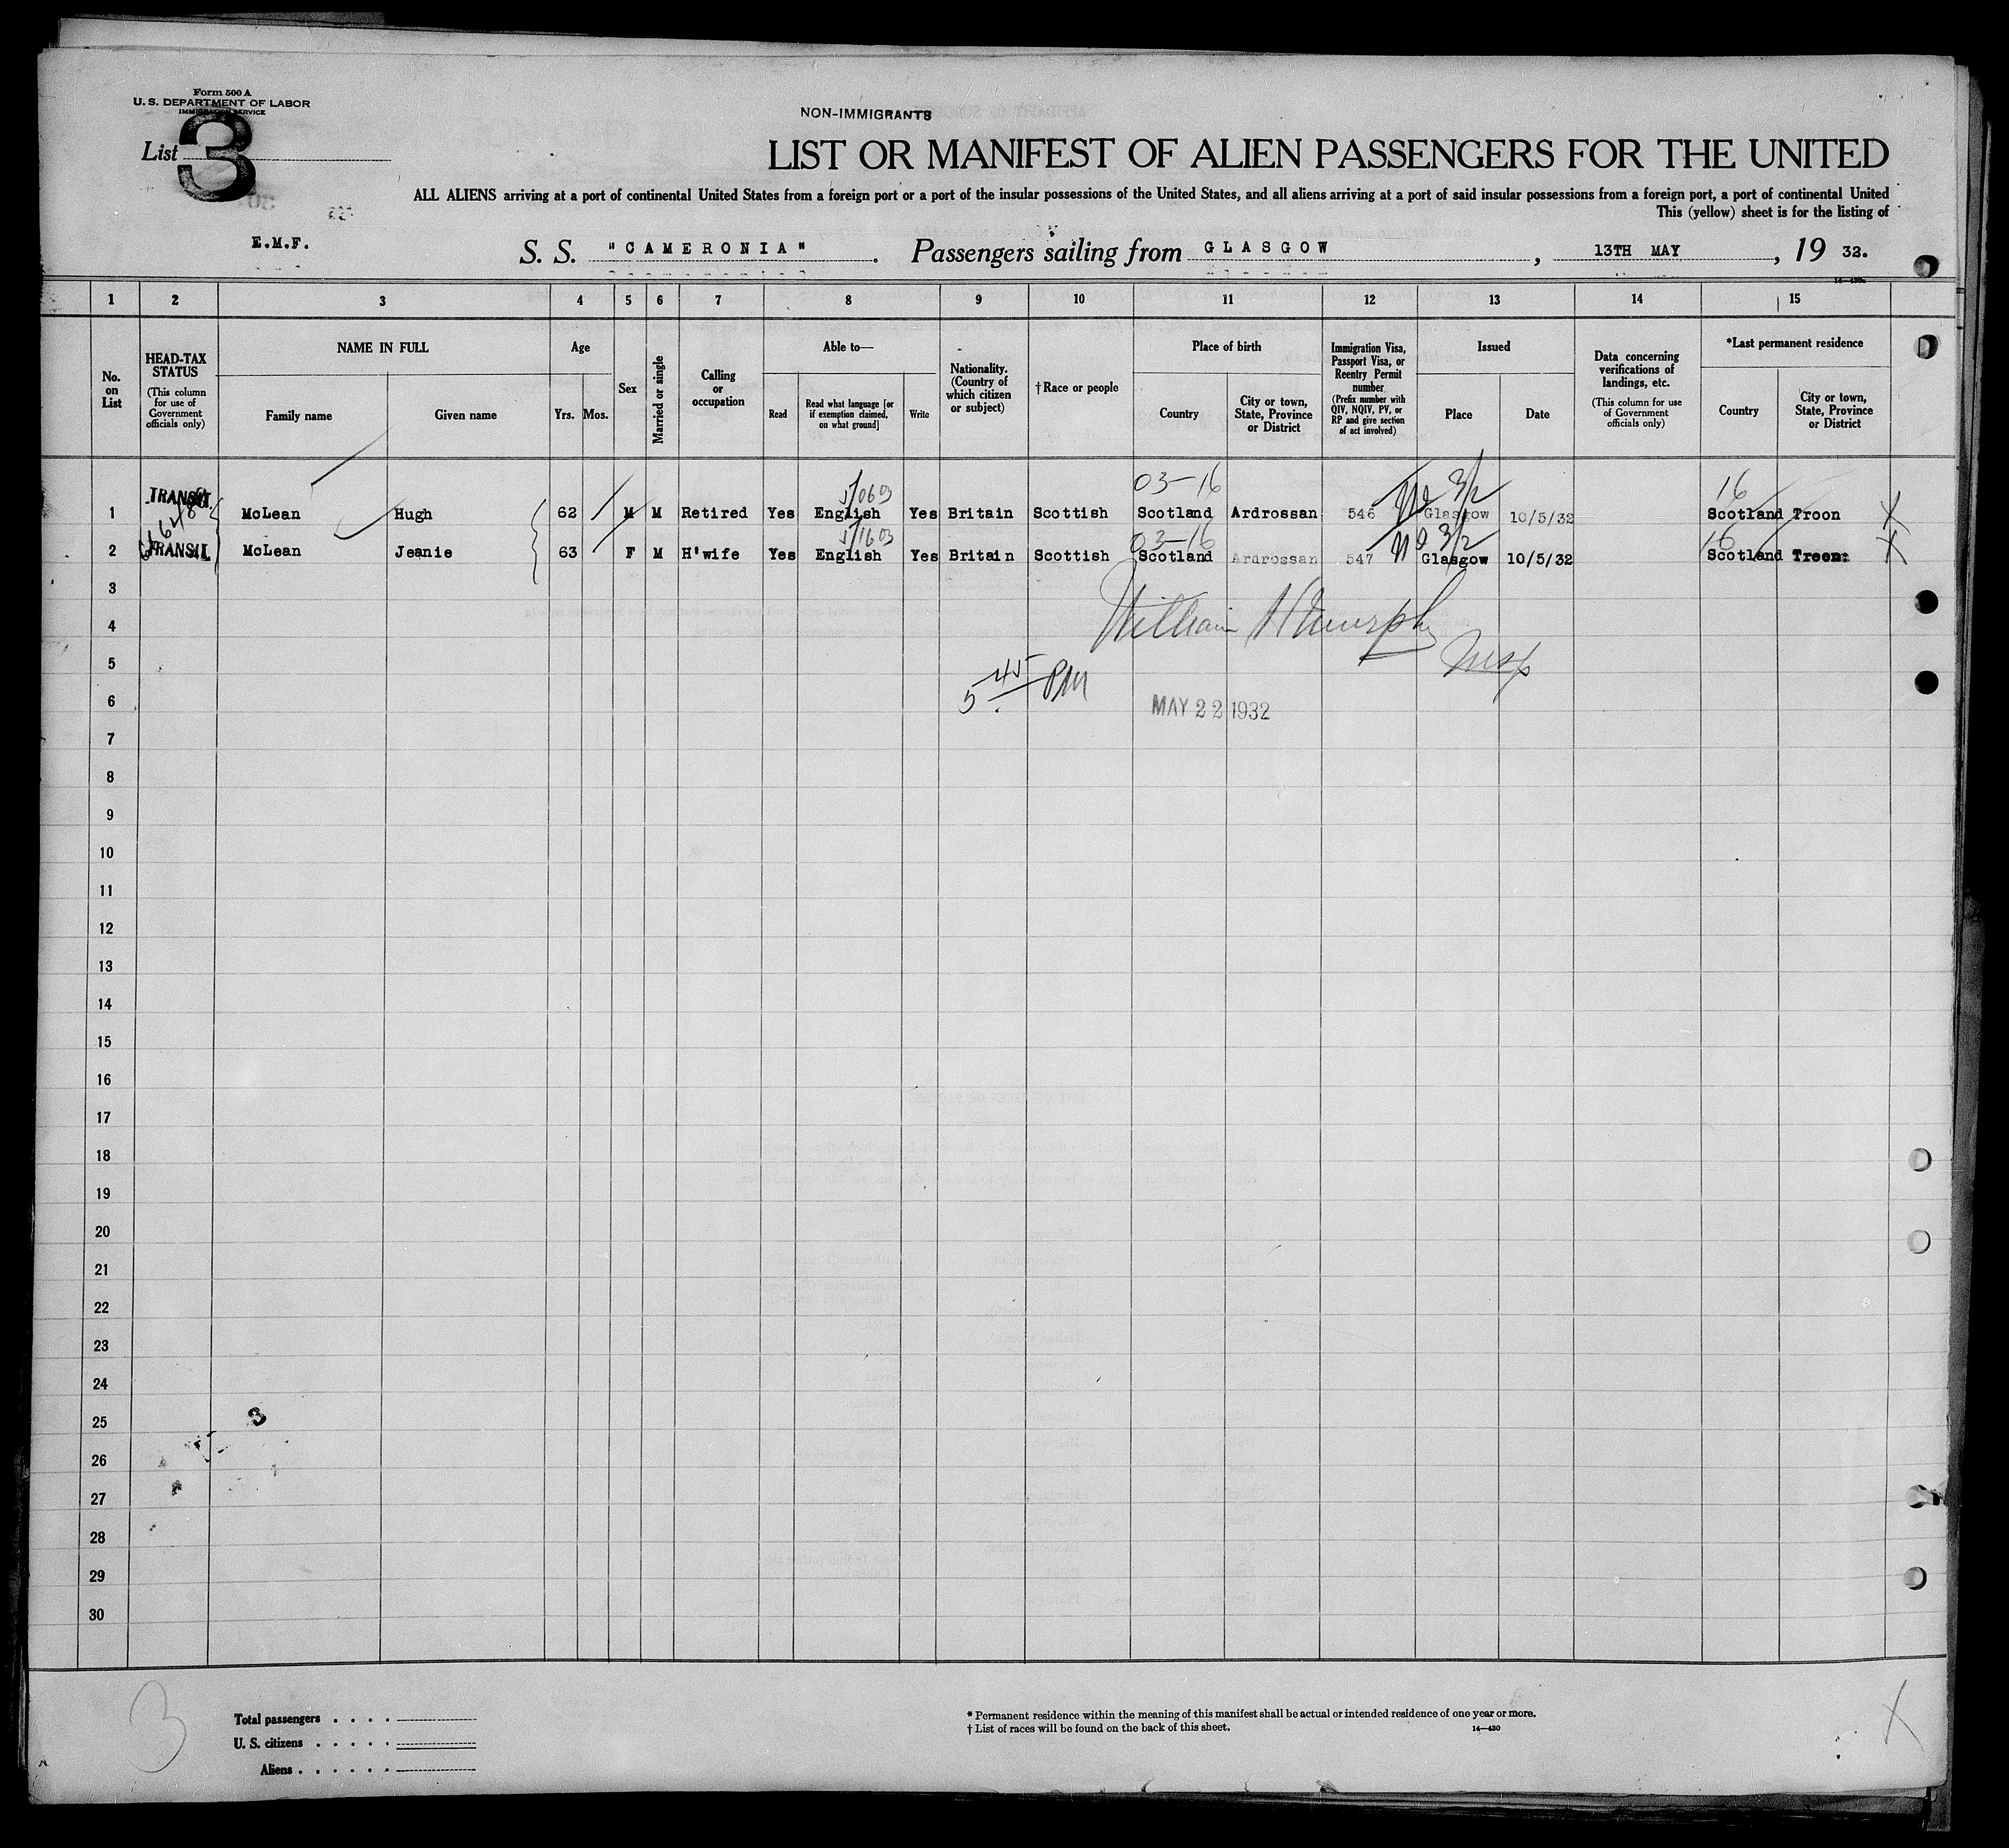 Form 500 A
U. S. DEPARTMENT OF LABOR
IMMIGRATION SERVICE
List 3
NON-IMMIGRANTS
LIST OR MANIFEST OF ALIEN PASSENGERS FOR THE UNITED
ALL ALIENS arriving at a port of continental United States from a foreign port or a port of the insular possessions of the United States, and all aliens arriving at a port of said insular possessions from a foreign port, a port of continental United
This (yellow) sheet is for the listing of
E.M.F.
S. S. "CAMERONIA". Passengers sailing from GLASGOW, 13TH MAY, 19 32.
14—430a
1 2 3 4 5 6 7 8 9 10 11 12 13 14 15
No. on List
HEAD-TAX STATUS
(This column for use of Government officials only)
NAME IN FULL
Family name Given name
Age
Yrs. Mos.
Sex
Married or single
Calling or occupation
Able to—
Read
Read what language [or if exemption claimed, on what ground]
Write
Nationality. (Country of which citizen or subject)
†Race or people
Place of birth
Country
City or town, State, Province or District
Immigration Visa, Passport Visa, or Reentry Permit number
(Prefix number with QIV, NQIV, PV, or RP and give section of act involved)
Issued
Place Date
Data concerning verifications of landings, etc.
(This column for use of Government officials only)
*Last permanent residence
Country
City or town, State, Province or District
03-16 3/2 16
1 TRANSIT. McLean Hugh 62 M M Retired Yes English Yes Britain Scottish Scotland Ardrossan 546 Glasgow 10/5/32 Scotland Troon X
03-16 3/2 16
2 TRANSIT. McLean Jeanie 63 F M H'wife Yes English Yes Britain Scottish Scotland Ardrossan 547 Glasgow 10/5/32 Scotland Troon: X
3
4 William H Murphy
5 Insp
5 45 PM
6 MAY 22 1932
7
8
9
10
11
12
13
14
15
16
17
18
19
20
21
22
23
24
25 3
26
27
28
29
30
3
Total passengers . . . .
U. S. citizens . . . . .
Aliens . . . . . .
* Permanent residence within the meaning of this manifest shall be actual or intended residence of one year or more.
† List of races will be found on the back of this sheet.
14—430
X